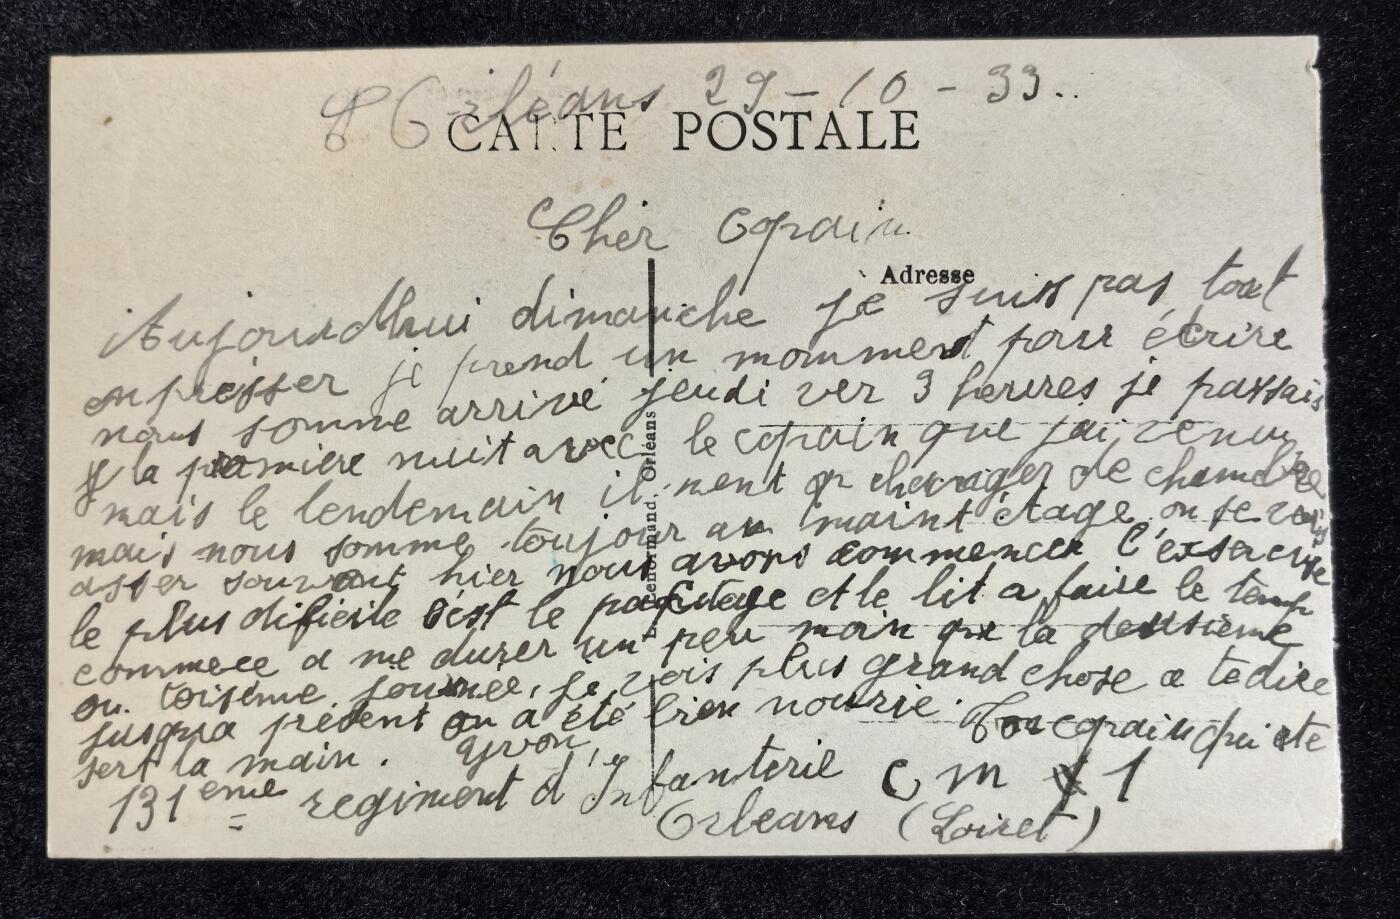 Orléans 29-10-33..
CARTE POSTALE
Cher Copain
Adresse
Aujourdhui dimanche je suis pas tout
empresser je prend un momment pour écrire
nous somme arrivé jeudi ver 3 heures je passais
la premiére nuit avec le copain que jai venu
mais le lendemain il nent changer de chambre
mais nous somme toujour au maint étage on se vois
asser souvent hier nous avons commencer l'exsercise
le plus dificile cést le pacttage et le lit a faire le temp
commece a me durer un peu moin que la deusième
ou toisème journée, je vois plus grand chose a te dire
jusqua présent on a été bien nourrie. Ton copain qui te
sert la main. Yvon
131eme regiment d'Infanterie C M 1
Orleans (Loiret)
Lenormand, Orléans